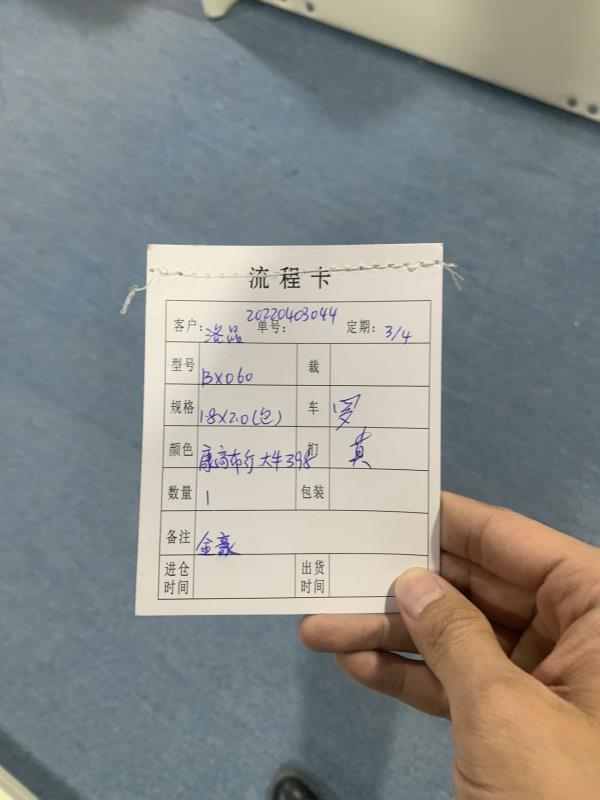 流程卡
20220403044
客户: 洛品 单号: 定期: 3/4
型号 BX060 裁
规格 1.8X2.0(包) 车 罗
颜色 康高布行大牛398 扣 真
数量 1 包装
备注 金豪
进仓时间 出货时间